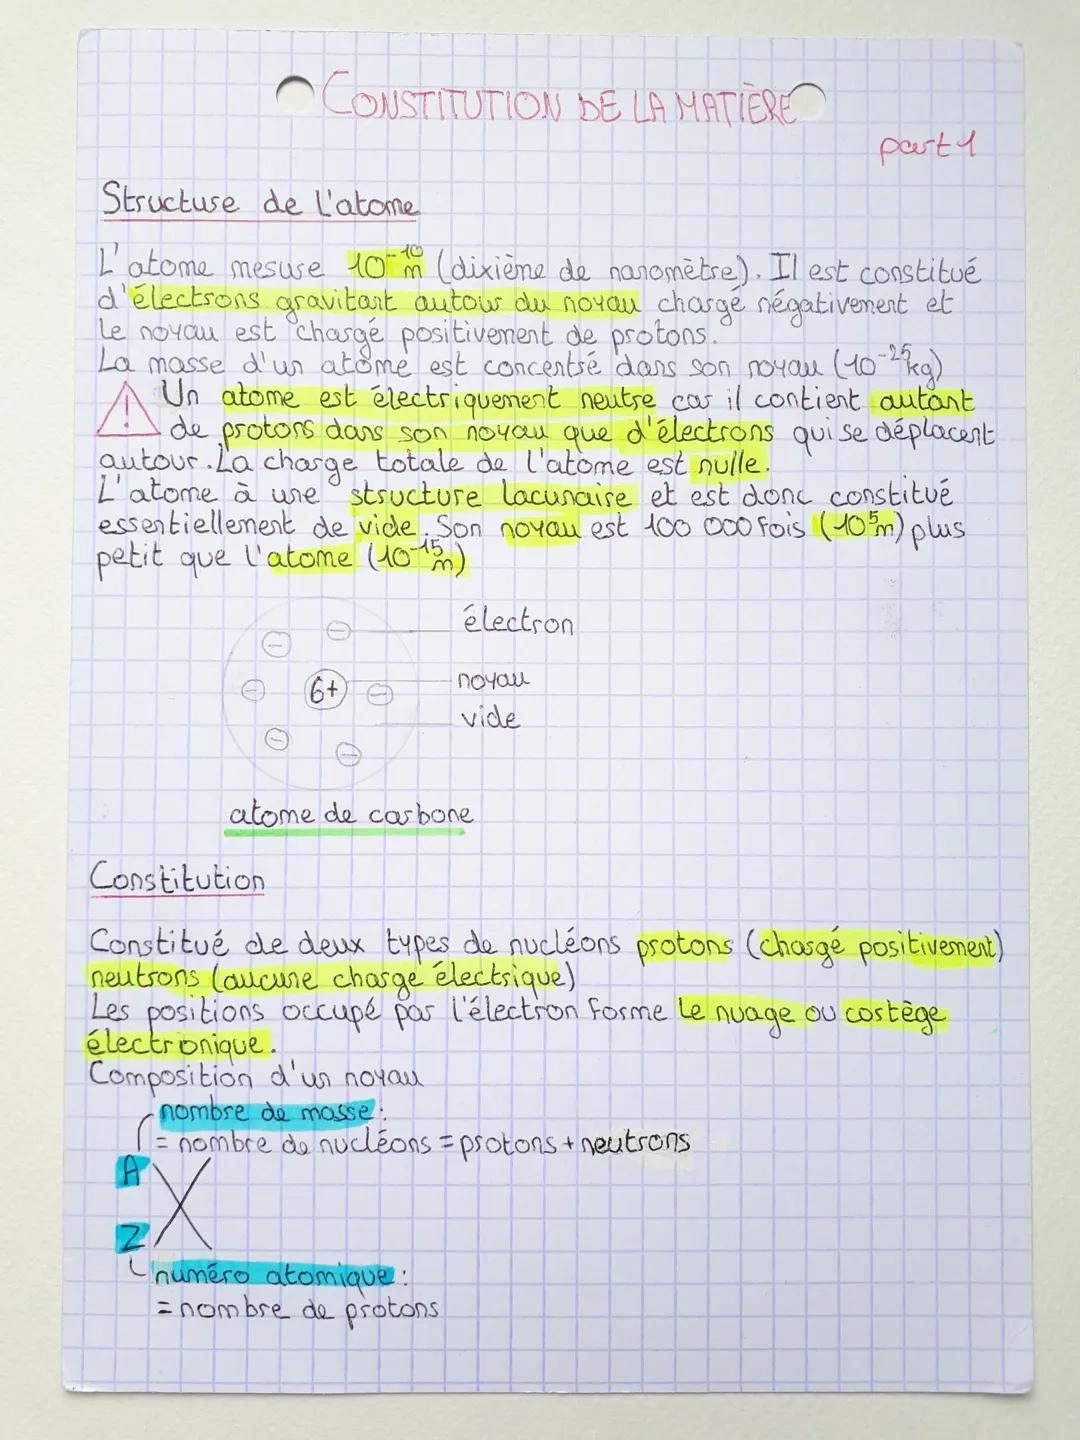 CONSTITUTION DE LA MATIÈRE
part 1
Structure de l'atome
L'atome mesure 10⁻¹⁰ m (dixième de nanomètre). Il est constitué
d'électrons gravitant autour du noyau chargé négativement et
le noyau est chargé positivement de protons.
La masse d'un atome est concentré dans son noyau (10⁻²⁵ kg)
! Un atome est électriquement neutre car il contient autant
de protons dans son noyau que d'électrons qui se déplacent
autour. La charge totale de l'atome est nulle.
L'atome à une structure lacunaire et est donc constitué
essentiellement de vide. Son noyau est 100 000 fois (10⁵m) plus
petit que l'atome (10⁻¹⁵m)
électron
noyau
6+
vide
atome de carbone
Constitution
Constitué de deux types de nucléons protons (chargé positivement)
neutrons (aucune charge électrique)
Les positions occupé par l'électron forme le nuage ou cortège
électronique.
Composition d'un noyau
nombre de masse :
= nombre de nucléons = protons + neutrons
A
X
Z
numéro atomique :
= nombre de protons